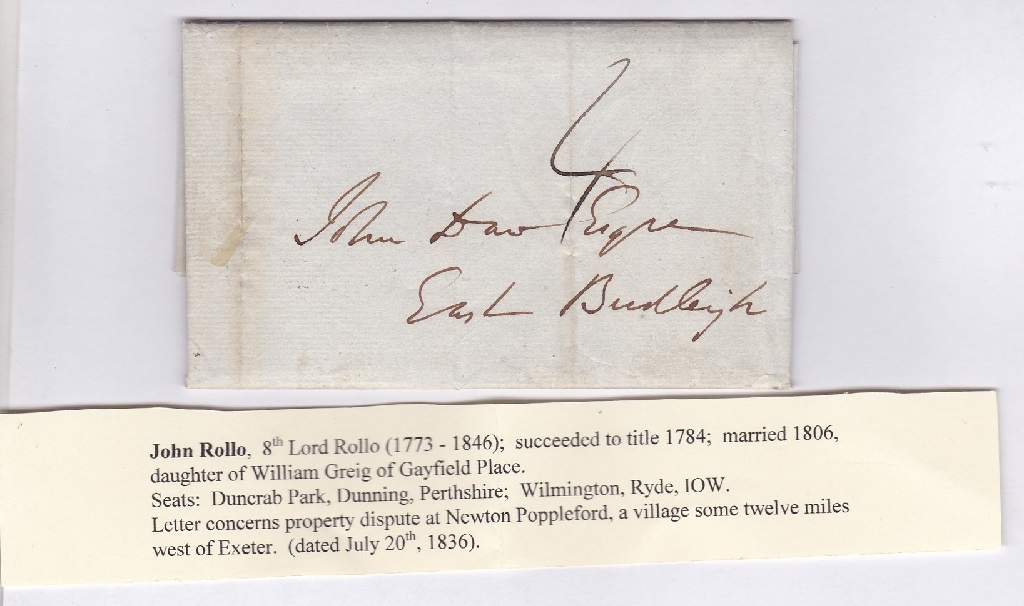 4
John Daw Esqre
East Budleigh
John Rollo, 8th Lord Rollo (1773 - 1846); succeeded to title 1784; married 1806,
daughter of William Greig of Gayfield Place.
Seats: Duncrab Park, Dunning, Perthshire; Wilmington, Ryde, IOW.
Letter concerns property dispute at Newton Poppleford, a village some twelve miles
west of Exeter. (dated July 20th, 1836).